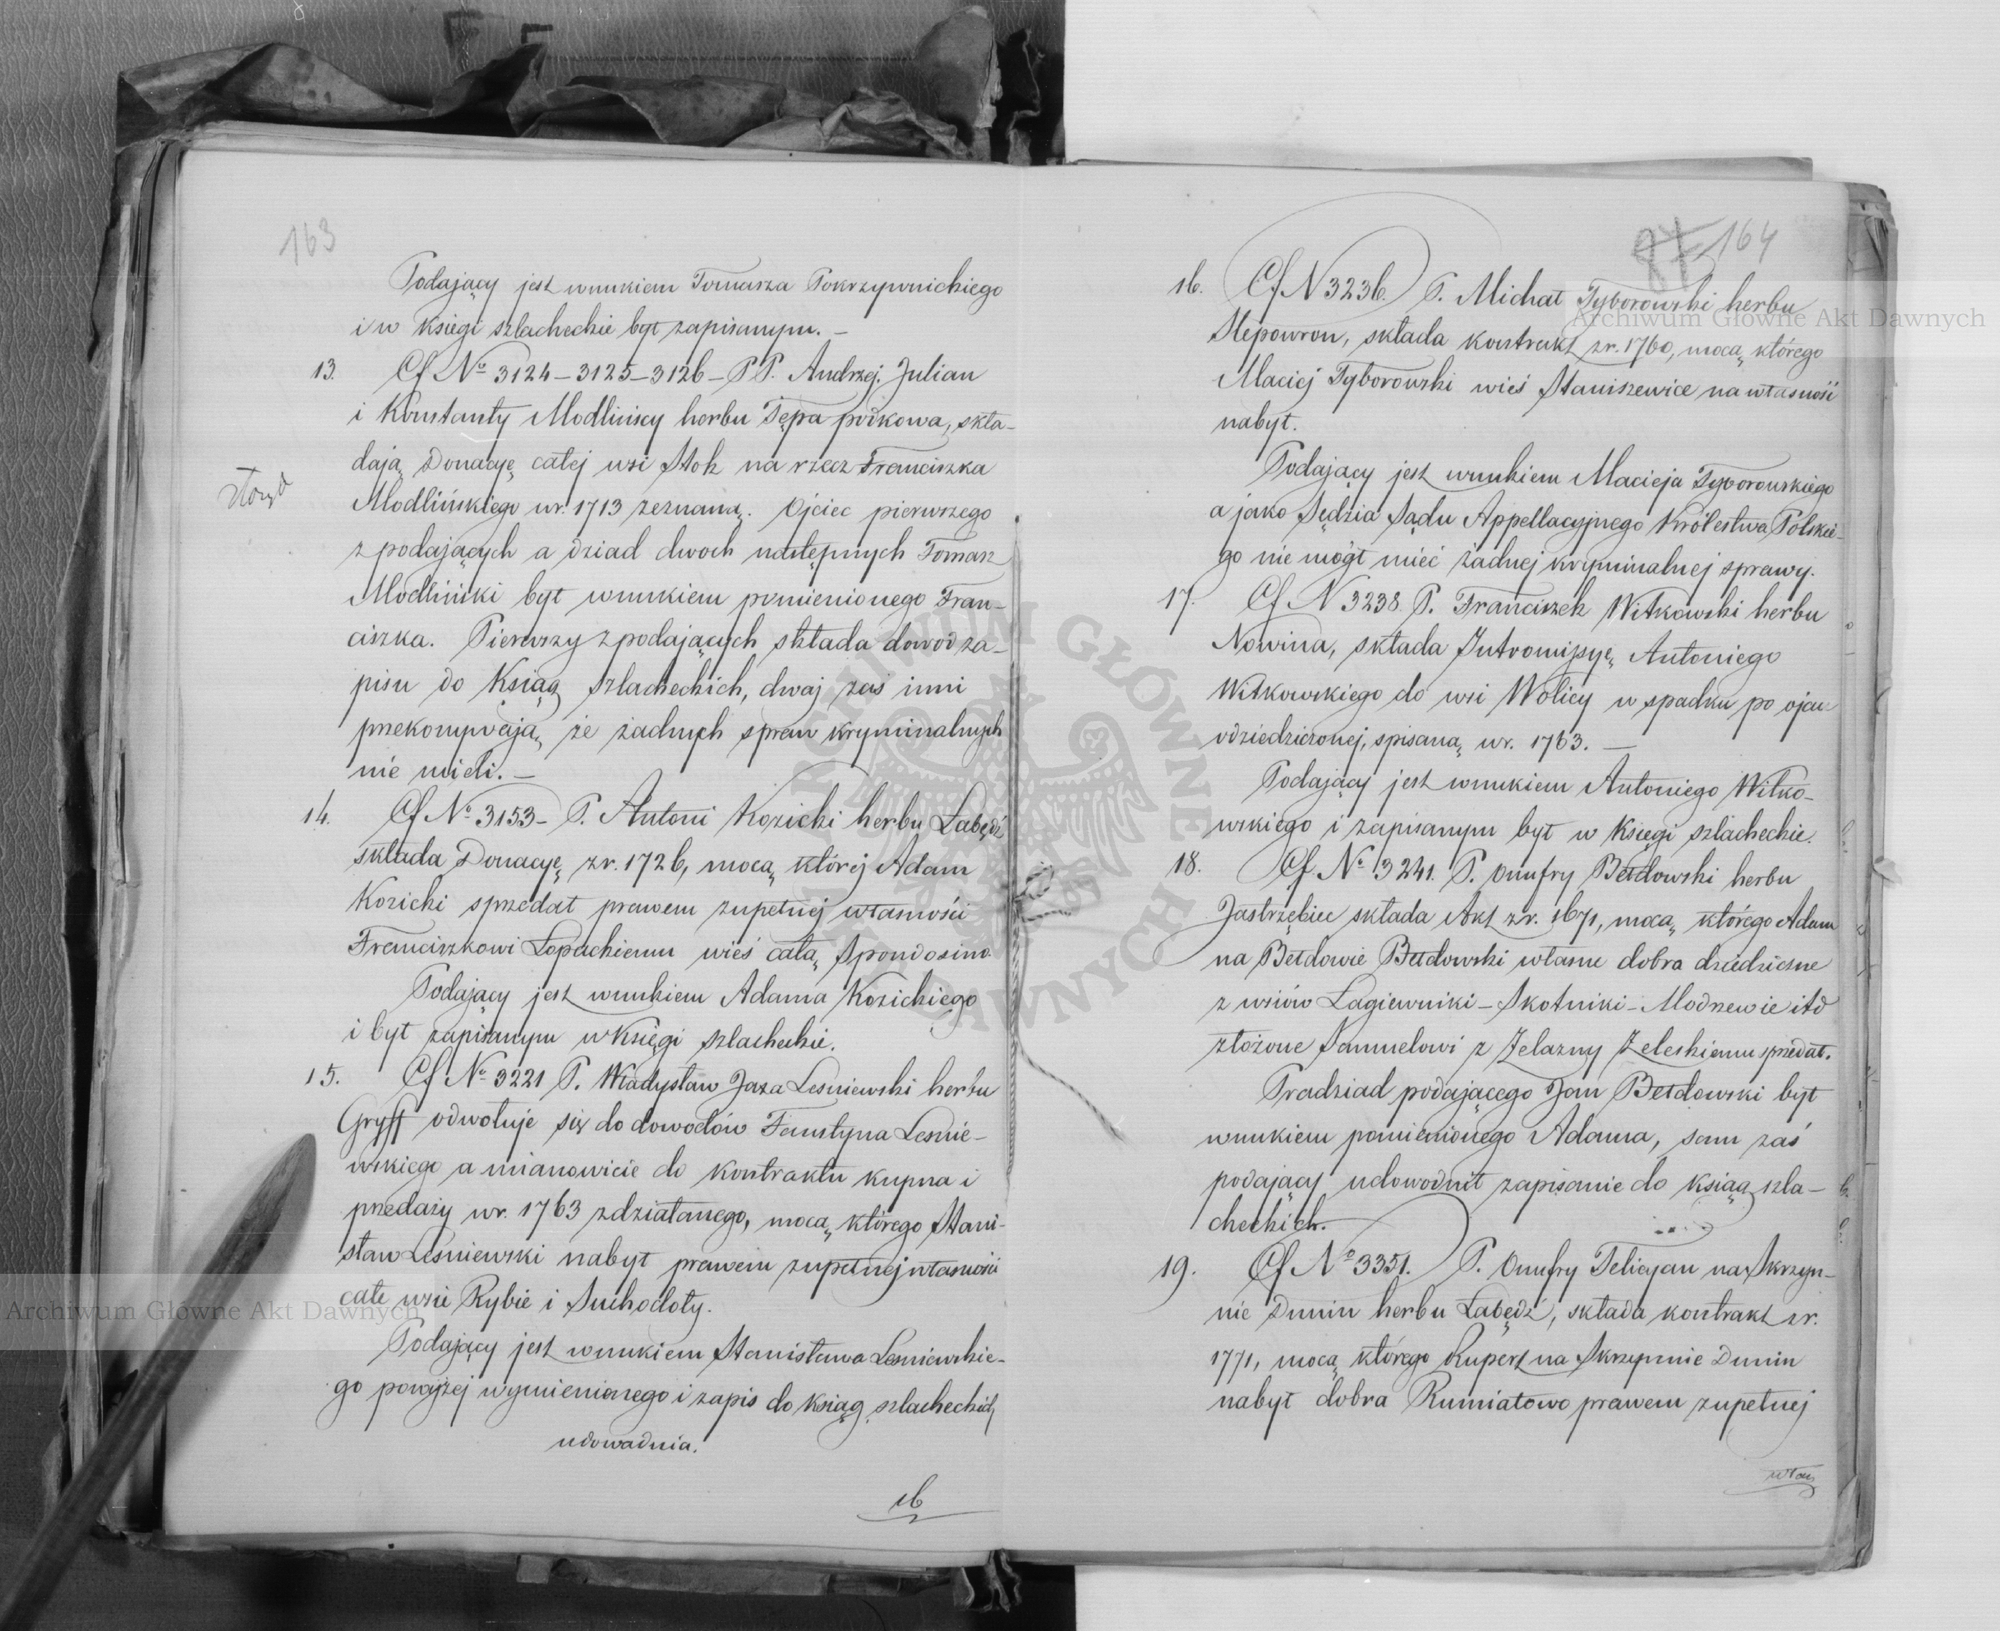 163
Podający jest wnukiem Tomasza Pokrzywnickiego
i w Księgi szlacheckie był zapisanym. —
13. Cf № 3124 – 3125 – 3126 – P.P. Andrzej, Julian
i Konstanty Modlińscy herbu Tępa podkowa, skła-
dają Donacyę całej wsi Stok na rzecz Franciszka
Modlińskiego w r. 1713 zeznaną. Ojciec pierwszego
z podających a dziad dwóch następnych Tomasz
Modliński był wnukiem pomienionego Fran-
ciszka. Pierwszy z podających składa dowód za-
pisu do Ksiąg szlacheckich, dwaj zaś inni
przekonywają, że żadnych spraw kryminalnych
nie mieli. —
14. Cf № 3153 – P. Antoni Kozicki herbu Łabędź
składa Donacyę z r. 1726, mocą której Adam
Kozicki sprzedał prawem zupełnej własności
Franciszkowi Łopackiemu wieś całą Spondosino.
Podający jest wnukiem Adama Kozickiego
i był zapisanym w Księgi szlacheckie.
15. Cf № 3221 P. Władysław Jaxa Leśniewski herbu
Gryff odwołuje się do dowodów Faustyna Leśnie-
wskiego a mianowicie do kontraktu kupna i
przedaży w r. 1763 zdziałanego, mocą którego Stani-
sław Leśniewski nabył prawem zupełnej własności
całe wsie Rybie i Suchodoły.
Podający jest wnukiem Stanisława Leśniewskie-
go powyżej wymienionego i zapis do ksiąg szlacheckich
udowadnia.
16
87 164
16. Cf N 3236. P. Michał Tyborowski herbu
Ślepowron, składa kontrakt z r. 1760, mocą którego
Maciej Tyborowski wieś Staniszewice na własność
nabył.
Podający jest wnukiem Macieja Tyborowskiego
a jako Sędzia Sądu Appellacyjnego Królestwa Polskie-
go nie mógł mieć żadnej kryminalnej sprawy.
17. Cf N 3238. P. Franciszek Witkowski herbu
Nowina, składa Intromissyę Antoniego
Witkowskiego do wsi Wolicy w spadku po ojcu
odziedziczonej, spisaną w r. 1763. —
Podający jest wnukiem Antoniego Witko-
wskiego i zapisanym był w Księgi szlacheckie.
18. Cf № 3241. P. Onufry Bełdowski herbu
Jastrzębiec składa Akt z r. 1671, mocą którego Adam
na Bełdowie Bełdowski własne dobra dziedziczne
z wsiów Łagiewniki – Skotniki – Modrzewie itd
złożone Samuelowi z Żelazny Żeleskiemu sprzedał.
Pradziad podającego Jan Bełdowski był
wnukiem pomienionego Adama, sam zaś
podający udowodnił zapisanie do ksiąg szla-
checkich.
19. Cf № 3351. P. Onufry Felicyan na Skrzyn-
nie Dunin herbu Łabędź, składa kontrakt z r.
1771, mocą którego Rupert na Skrzynnie Dunin
nabył dobra Rumiatowo prawem zupełnej
włas
Archiwum Główne Akt Dawnych
Archiwum Główne Akt Dawnych
ARCHIWUM GŁÓWNE AKT DAWNYCH